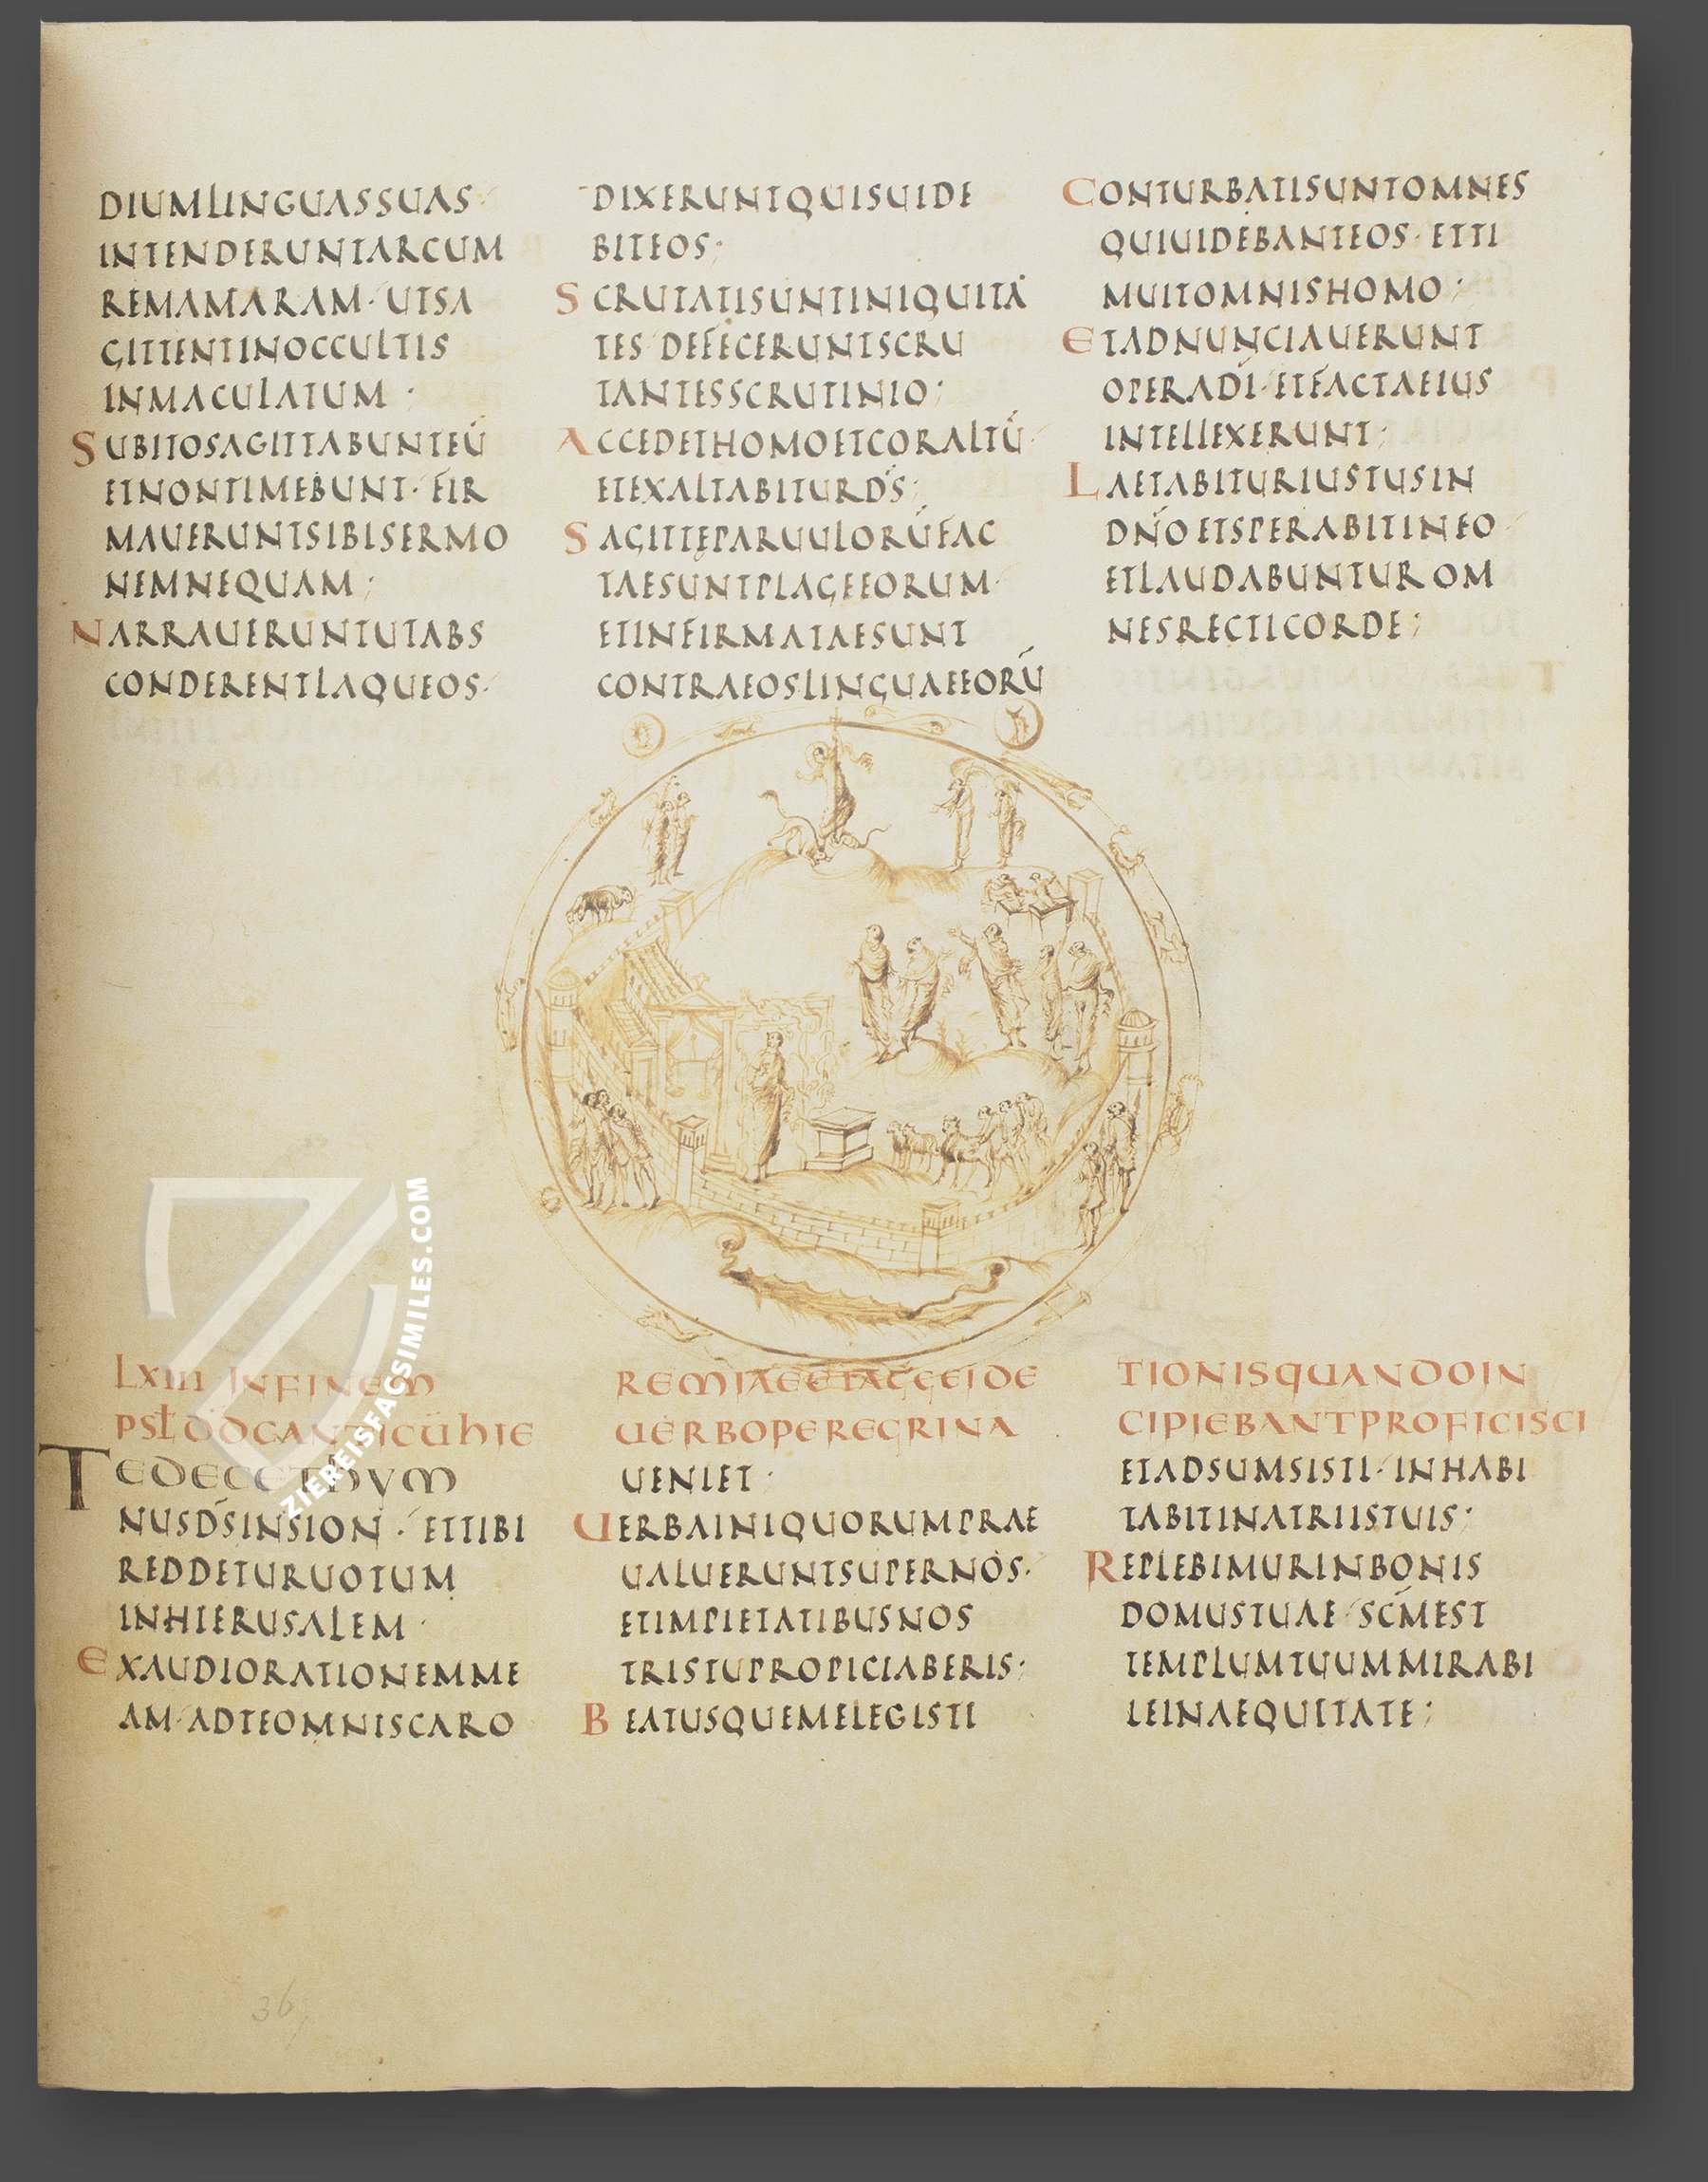 DIUMLINGUASSUAS
INTENDERUNTARCUM
REMAMARAM· UTSA
GITTENTINOCCULTIS
INMACULATUM·
SUBITOSAGITTABUNTEŪ
ETNONTIMEBUNT· FIR
MAUERUNTSIBISERMO
NEMNEQUAM;
NARRAUERUNTUTABS
CONDERENTLAQUEOS·
DIXERUNTQUISUIDE
BITEOS;
SCRUTATISUNTINIQUITA
TES DEFECERUNTSCRU
TANTESSCRUTINIO;
ACCEDETHOMOETCORALTŪ
ETEXALTABITURDS̄;
SAGITTĘPARUULORŪFAC
TAESUNTPLAGEEORUM·
ETINFIRMATAESUNT
CONTRAEOSLINGUAEEORŪ
CONTURBATISUNTOMNES
QUIUIDEBANTEOS· ETTI
MUITOMNISHOMO;
ETADNUNCIAUERUNT
OPERADĪ· ETFACTAEIUS
INTELLEXERUNT;
LAETABITURIUSTUSIN
DN̄OETSPERABITINEO
ETLAUDABUNTUROM
NESRECTICORDE;
LXIII INFINEM
PSLDDCANTICŪHIE
TEDECETHYM
NUSDS̄INSION· ETTIBI
REDDETURUOTUM
INHIERUSALEM·
EXAUDIORATIONEMME
AM·ADTEOMNISCARO
REMIAEETAGGEIDE
UERBOPEREGRINA
UENIET·
UERBAINIQUORUMPRAE
UALUERUNTSUPERNOS·
ETIMPIETATIBUSNOS
TRISTUPROPICIABERIS;
BEATUSQUEMELEGISTI
TIONISQUANDOIN
CIPIEBANTPROFICISCI
ETADSUMSISTI· INHABI
TABITINATRIISTUIS;
REPLEBIMURINBONIS
DOMUSTUAE·SCM̄EST
TEMPLUMTUUMMIRABI
LEINAEQUITATE;
36
ZIEREISFACSIMILES.COM